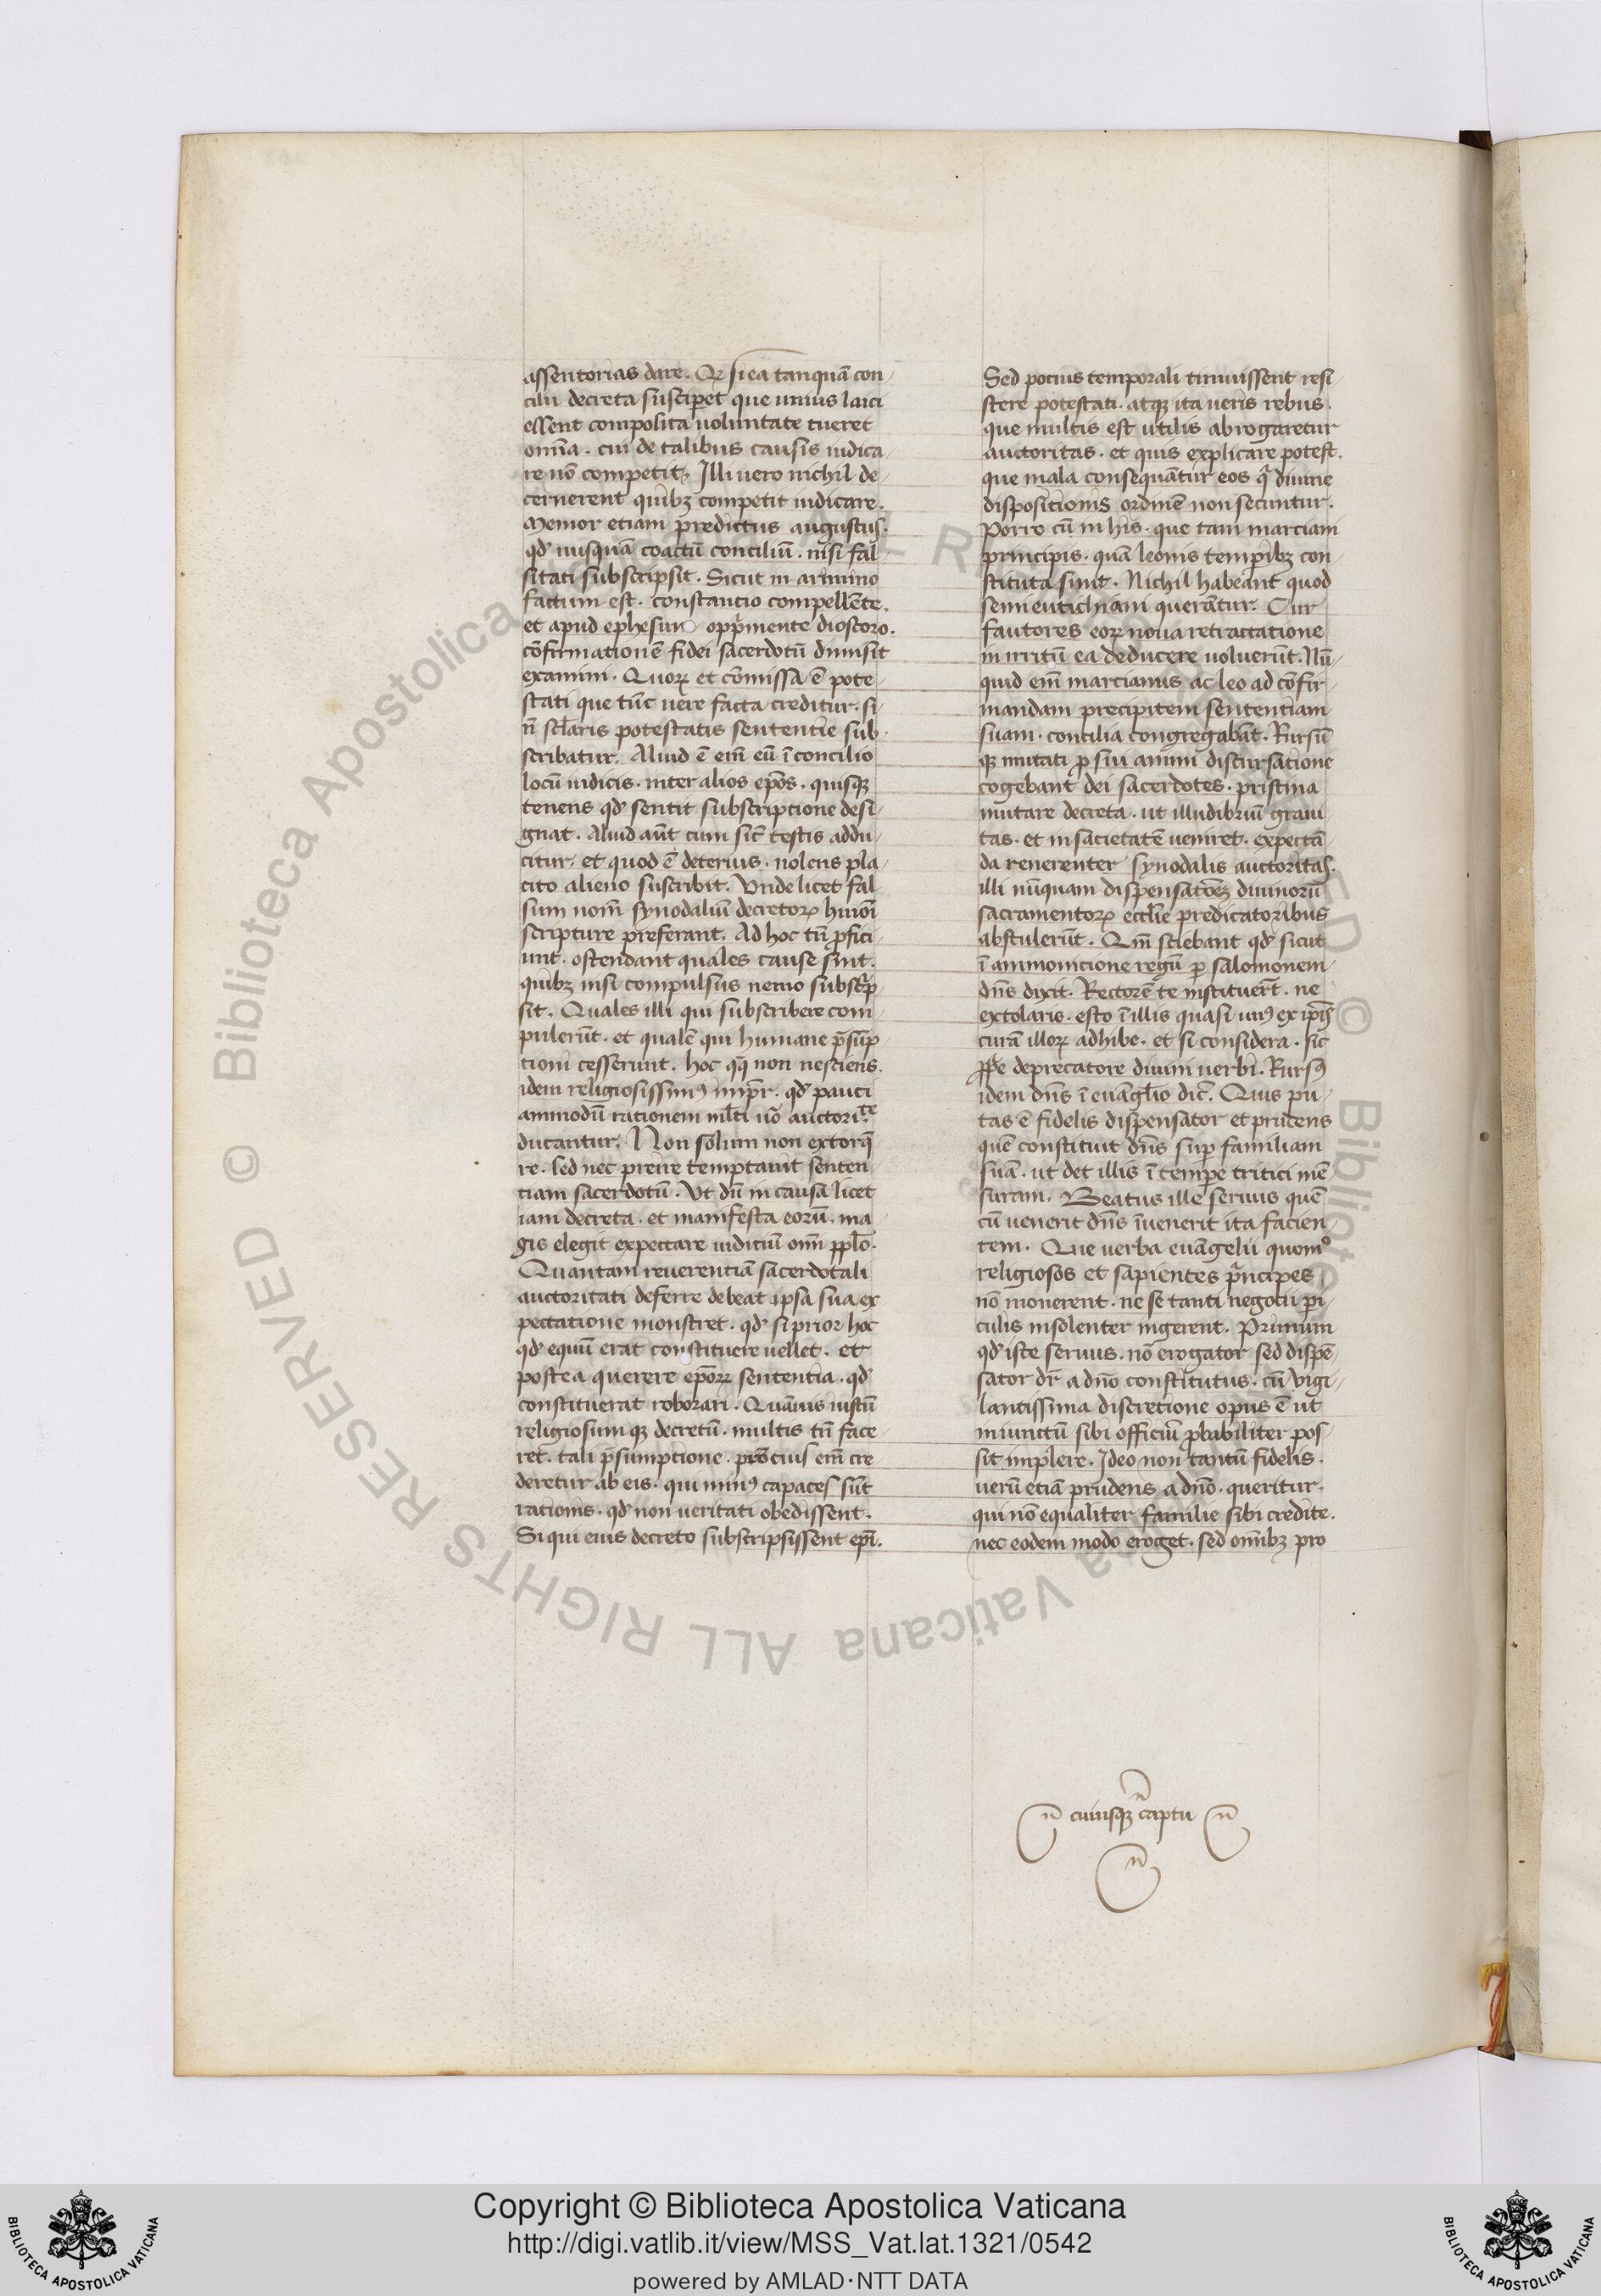 assentorias dare. Qꝛ si ea tanquā con-
cilii decreta susciperet que unius laici
essent composita uoluntate tueret
om̄ia. cui de talibus causis iudica-
re nō competit. Illi uero nichil de-
cernerent quibꝫ competit iudicare.
Memor etiam predictus augustus.
qđ nusquā coactū conciliū. nisi fal
sitati subscripsit. Sicut in arimino
factum est. constancio compellēte.
et apud ephesum opprimente dioscoro.
cōfirmationē fidei sacerdotū dimisit
examini. Quoꝝ et cōmissa ē pote-
stati que tūc uere facta creditur. si
n̄ sclaris potestatis sententie sub-
scribatur. Aliud ē em̄ eū ī concilio
locū iudicis. inter alios ep̄os. quisqꝫ
tenens qđ sentit subscriptione desi-
gnat. Aliud aūt cum sic̄ testis addu-
citur. et quod ē deterius. nolens pla-
cito alieno suscribit. Vnde licet fal
sum nom̄ synodaliū decretoꝝ huiōi
scripture preferant. Ad hoc tn̄ ꝓfici-
unt. ostendant quales cause sint.
quibꝫ nisi compulsus nemo subscrip
sit. Quales illi qui subscribere com
pulerūt. et qualē qui humane p̄sūp
tioni cesserunt. hoc qꝫ non nesciens.
idem religiosissimꝰ impr̄. qđ pauci
ammodū rationem ml̄ti uō auctori.te
ducantur. Non solum non extorq̄
re. sed nec preire temptauit senten
tiam sacerdotū. Vt dū in causa licet
iam decreta. et manifesta eorū. ma
gis elegit expectare iudiciū om̄i ppl̄o.
Quantam reuerentiā sacerdotali
auctoritati deferre debeat ipsa sua ex
pectatione monstret. qđ si prior hoc
qđ equū erat constituere uellet. et
postea querere ep̄oꝝ sententia. qđ
constituerat roborari. Quāuis iustū
religiosumqꝫ decretū. multis tn̄ face
ret. tali p̄sumptione. procius em̄ cre
deretur ab eis. qui minꝰ capaces sūt
rationis. qđ non ueritati obedissent.
Si qui eius decreto subscripsissent ep̄i.
Sed pocius temporali timuissent resi
stere potestati. atqꝫ ita ueris rebus.
que multis est utilis abrogaretur
auctoritas. et quis explicare potest.
que mala consequātur eos q̄ diuine
dispositionis ordinē non secuntur.
Porro cū in his. que tam marciani
principis. quā leonis tempibꝫ con
stituta sunt. Nichil habeant quod
semieutichiani querātur. Cur
fautores eoꝝ noua retractatione
in irritū ea deducere uoluerūt. Nū-
quid em̄ marcianus ac leo ad cōfir-
mandam precipitem sententiam
suam. concilia congregabāt. Rursū
qꝫ mutati ꝓ sui animi discursatione
cogebant dei sacerdotes. pristina
mutare decreta. ut illudibriū graui
tas. et in sacietatē ueniret. expectā-
da reuerenter synodalis auctoritas.
illi nūquam dispensatōeꝫ diuinorū
sacramentoꝝ eccl̄ie predicatoribus
abstulerūt. Qm̄ sciebant qđ sicut
ī ammonicione regū ꝑ salomonem
dn̄s dixit. Rectorē te instituer̄t. ne
extolaris. esto ī illis quasi unꝰ ex ip̄is
curā illoꝝ adhibe. et si considera. sic
ꝓpe deprecatore diuini uerbi. Rursꝰ
idem dn̄s ī euāgl̄io dic̄. Quis pu-
tas ē fidelis dispensator et prudens
quē constituit dn̄s sup familiam
suā. ut det illis ī tempe tritici mē-
suram. Beatus ille seruus quē
cū uenerit dn̄s īuenerit ita facien-
tem. Que uerba euāgelii quomͦ
religiosos et sapientes p̄ncipes
nō monerent. ne se tanti negotii ꝑi-
culis insolenter ingerent. Primum
qđ iste seruus. nō erogator sed dispē-
sator dr̄ a dn̄o constitutus. cū vigi-
lantissima discretione opus ē ut
iniunctū sibi officiū ꝓbabiliter pos-
sit implere. Ideo non tantū fidelis.
uerū etiā prudens a dn̄o. queritur.
qui nō equaliter familie sibi credite.
nec eodem modo eroget. sed om̄ibꝫ pro
cuiusqꝫ captu
© Biblioteca Apostolica Vaticana ALL RIGHTS RESERVED
Copyright © Biblioteca Apostolica Vaticana
http://digi.vatlib.it/view/MSS_Vat.lat.1321/0542
powered by AMLAD·NTT DATA
BIBLIOTECA APOSTOLICA VATICANA
BIBLIOTECA APOSTOLICA VATICANA